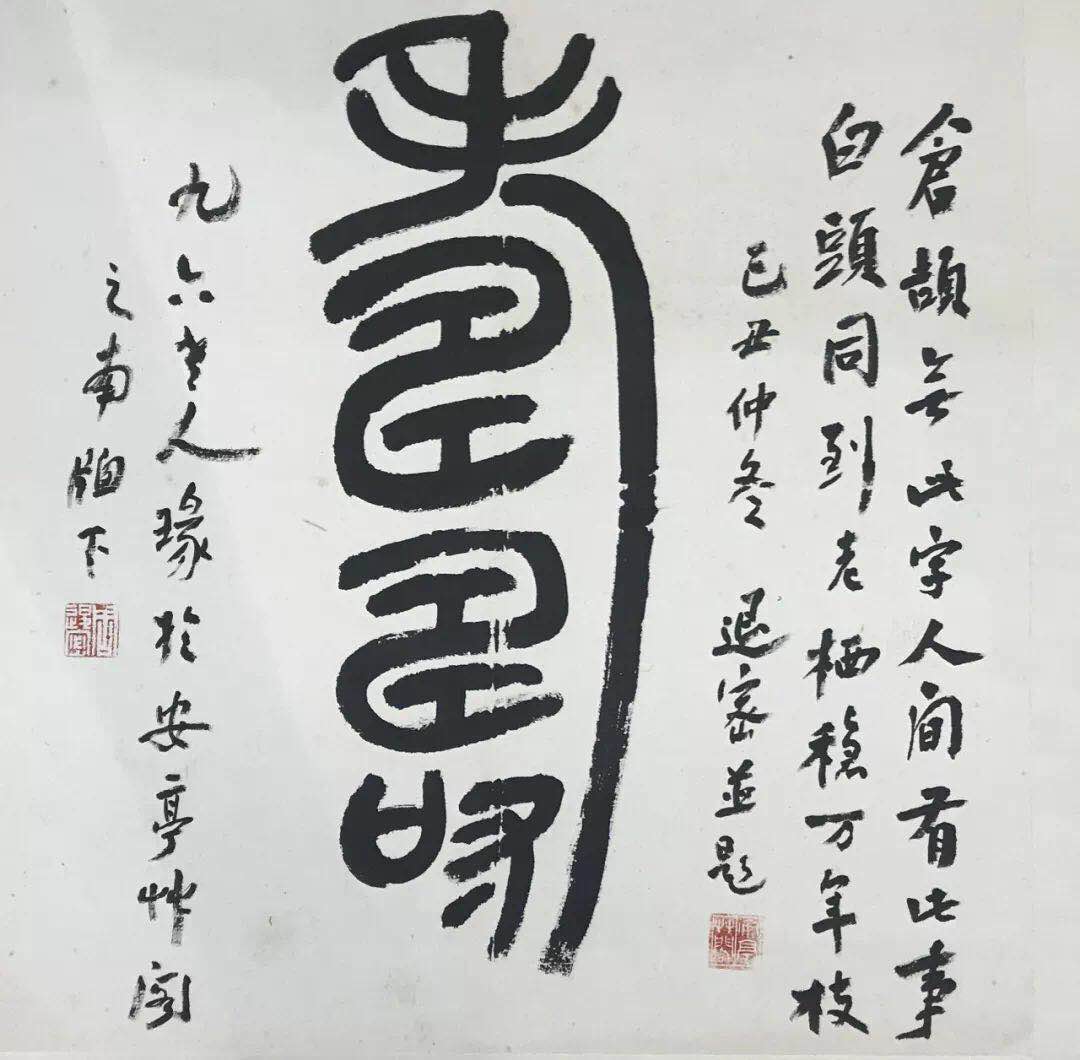 倉頡無此字人間有此事
白頭同到老栖穩万年枝
己丑仲冬 退密並題
壽
九六老人瑑於安亭艸閣
之南牕下